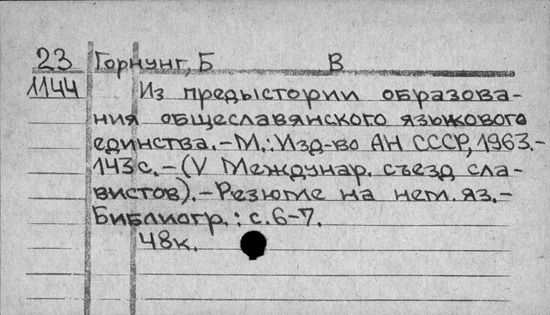 23 Горнунг, Б В
1144 Из предыстории образова-
ния общеславянского языкового
единства.-М.:Изд-во АН СССР, 1963.-
143с.-(V Междунар. съезд сла-
вистов).-Резюме на нем.яз.-
Библиогр.: с.6-7.
48к.